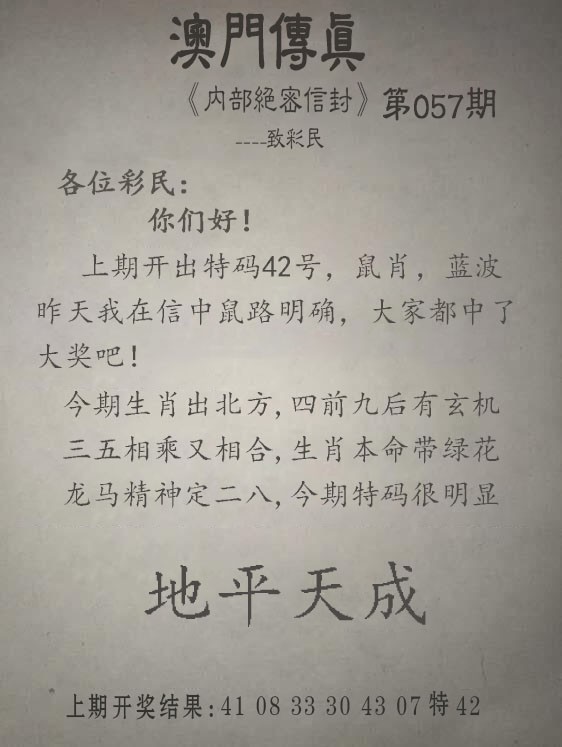 澳門傳真
《内部絕密信封》第057期
----致彩民
各位彩民：
你们好！
上期开出特码42号，鼠肖，蓝波
昨天我在信中鼠路明确，大家都中了
大奖吧！
今期生肖出北方,四前九后有玄机
三五相乘又相合,生肖本命带绿花
龙马精神定二八,今期特码很明显
地平天成
上期开奖结果:41 08 33 30 43 07 特 42